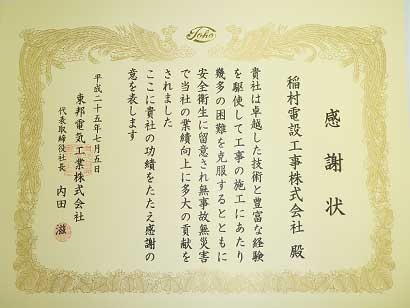 Toho
感謝状
稲村電設工事株式会社 殿
貴社は卓越した技術と豊富な経験
を駆使して工事の施工にあたり
幾多の困難を克服するとともに
安全衛生に留意され無事故無災害
で当社の業績向上に多大の貢献を
されました
ここに貴社の功績をたたえ感謝の
意を表します
平成二十五年七月五日
東邦電気工業株式会社
代表取締役社長 内田 滋